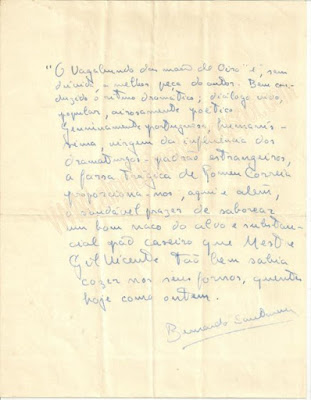 "O Vagabundo das mãos de Oiro" é, sem
dúvida, a melhor peça do autor. Bem con-
duzido o ritmo dramático; diálogo vivo,
popular, airosamente poético.
Genuinamente portuguesa, humanís-
sima, virgem da influência dos
dramaturgos-padrão estrangeiros,
a farsa trágica de Romeu Correia
proporciona-nos, aqui e além,
o saudável prazer de saborear
um bom naco do alvo e substan-
cial pão caseiro que Mestre
Gil Vicente tão bem sabia
cozer nos seus fornos, quentes
hoje como ontem.
Bernardo Santareno